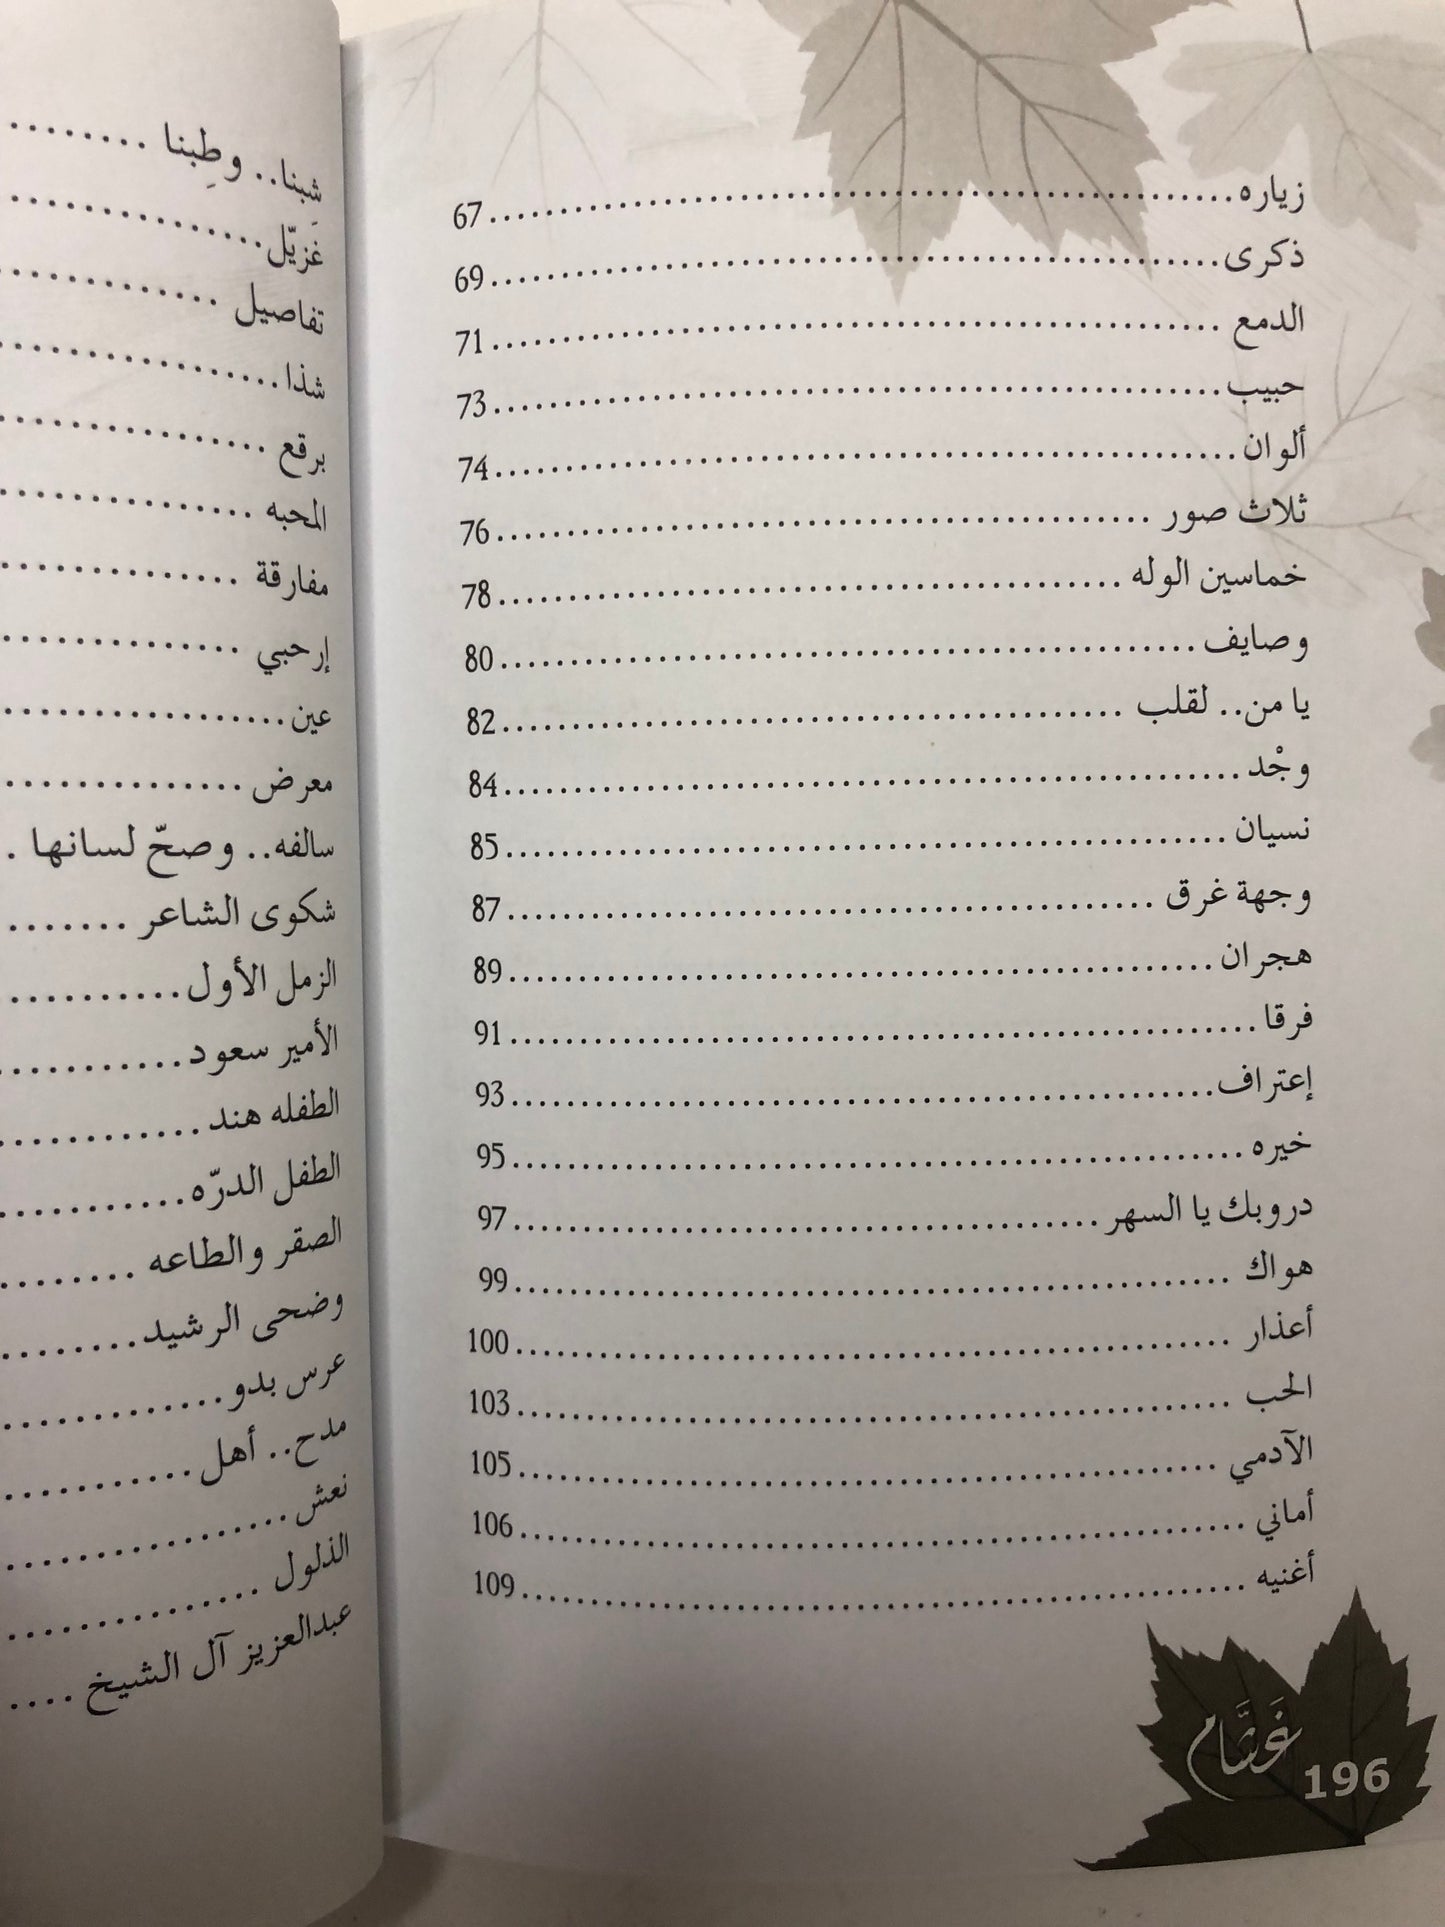 زياره........................................67
ذكرى........................................69
الدمع ........................................71
حبيب........................................73
ألوان........................................74
ثلاث صور ........................................76
خماسين الوله ........................................78
وصايف........................................80
يا من.. لقلب ........................................82
وجْد........................................84
نسيان ........................................85
وجهة غرق ........................................87
هجران........................................89
فرقا........................................91
إعتراف........................................93
خيره ........................................95
دروبك يا السهر........................................97
هواك ........................................99
أعذار ........................................100
الحب ........................................103
الآدمي ........................................105
أماني ........................................106
أغنيه ........................................109
غَشَّام
196
شِبنا.. وطِبنا ........
غزيّل..............
تفاصيل ............
شذا................
برقع ...............
المحبه ..............
مفارقة .............
إرحبي .............
عين................
معرض ..............
سالفه.. وصحّ لسانها .
شكوى الشاعر .......
الزمل الأول...........
الأمير سعود...........
الطفله هند............
الطفل الدرّه...........
الصقر والطاعه ........
وضحى الرشيد........
عرس بدو............
مدح.. أهل...........
نعش................
الذلول ..............
عبدالعزيز آل الشيخ ....